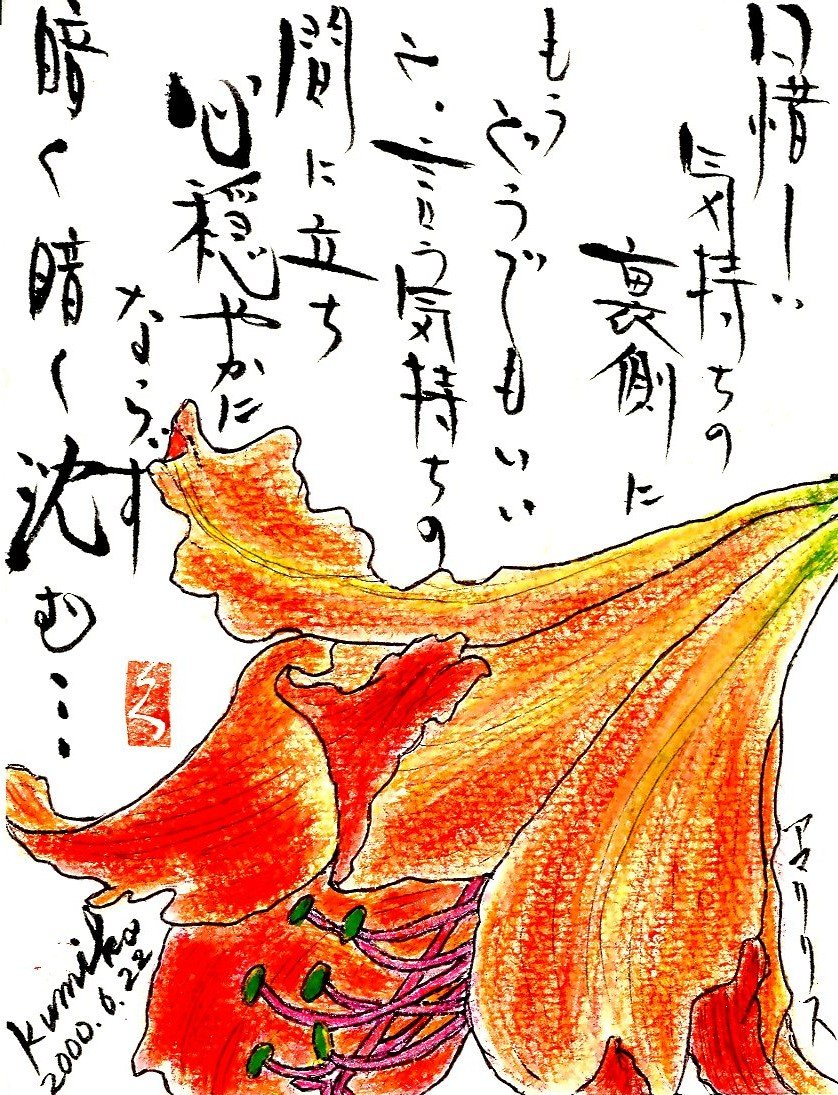 口惜しい
気持ちの
裏側に
もう
どうでもいい
と、言う気持ちの
間に立ち
心穏やかに
ならず
暗く暗く沈む…
アマリリス
Kumiko
2000.6.22